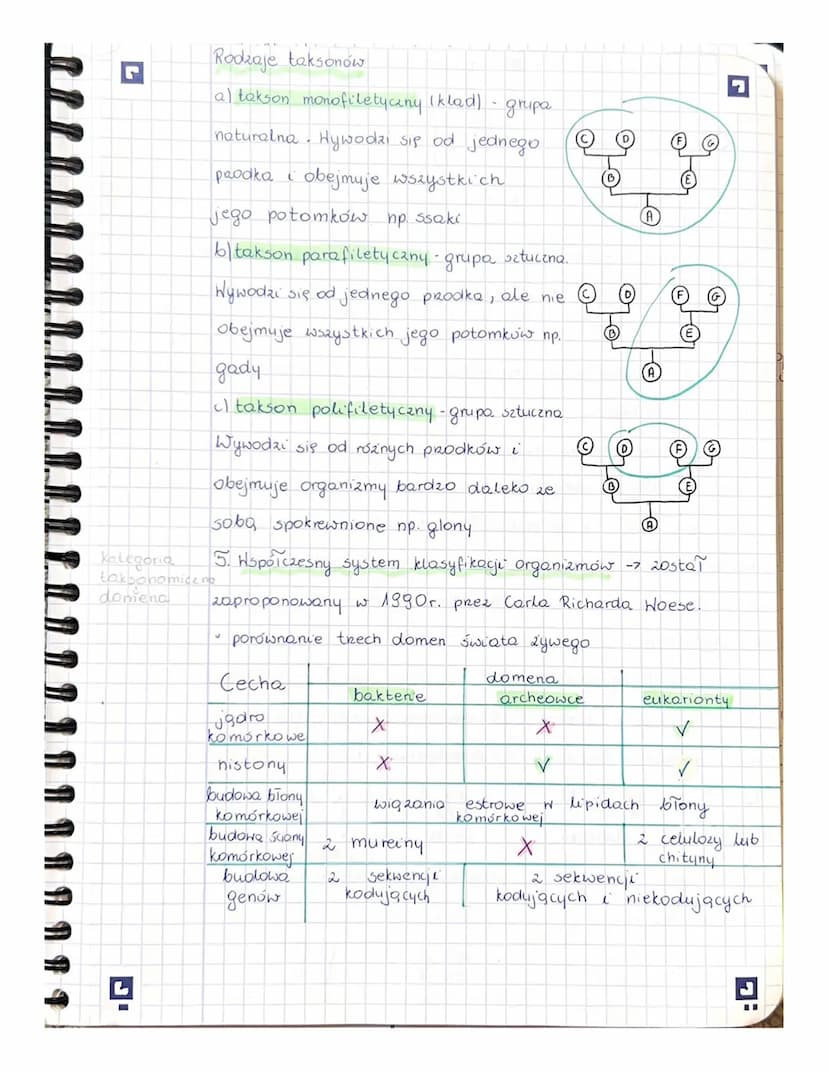 Rodzaje taksonów
a) takson monofiletyczny (klad) - grupa
naturalna. Wywodzi się od jednego
przodka i obejmuje wszystkich
jego potomków np. ssaki
C D F G
B E
A
b) takson parafiletyczny - grupa sztuczna.
Wywodzi się od jednego przodka, ale nie
obejmuje wszystkich jego potomków np.
gady
C D F G
B E
A
c) takson polifiletyczny - grupa sztuczna
Wywodzi się od różnych przodków i
obejmuje organizmy bardzo daleko ze
sobą spokrewnione np. glony
C D F G
B E
A
kategoria
taksonomiczna
domena
5. Współczesny system klasyfikacji organizmów → został
zaproponowany w 1990r. przez Carla Richarda Woese.
• porównanie trzech domen świata żywego
Cecha domena
bakterie archeowce eukarionty
jądro
komórkowe x x ✓
histony x ✓ ✓
budowa błony
komórkowej
wiązania estrowe w lipidach błony
komórkowej
budowa ściany
komórkowej
z mureiny x z celulozy lub
chityny
budowa
genów
z sekwencji
kodujących
z sekwencji
kodujących i niekodujących